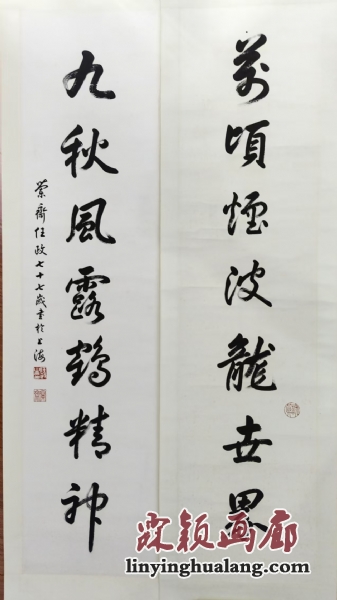 萬頃煙波龍世界
九秋風露鶴精神
蘭齋任政七十七歲書於上海
霖颖画廊
linyinghualang.com